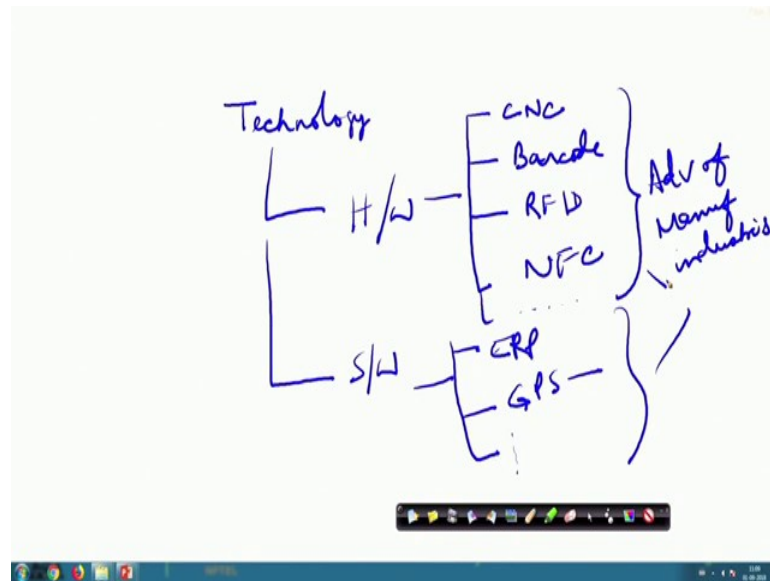 Technology
H/W
CNC
Barcode
RFID
NFC
.....
Adv of
Manuf
industris
S/W
ERP
GPS
NPTEL
11:09